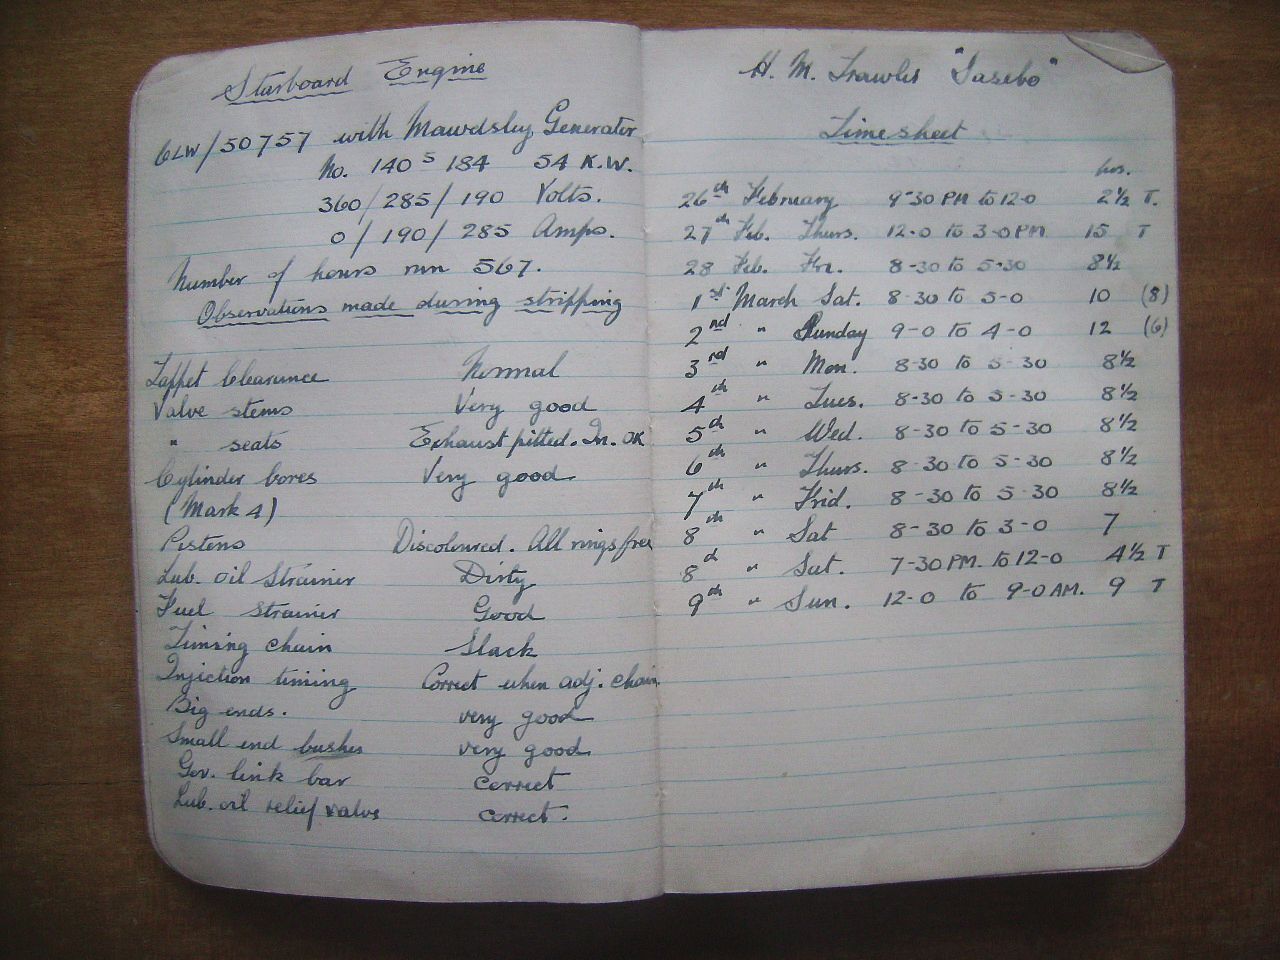 Starboard Engine
6LW/50757 with Mawdsley Generator
No. 140 5 184 54 K.W.
360/285/190 Volts.
0/190/285 Amps.
Number of hours run 567.
Observations made during stripping
Tappet Clearance Normal
Valve stems Very good
" seats Exhaust pitted. In. OK
Cylinder bores Very good
(Mark 4)
Pistons Discoloured. All rings free
Lub. oil Strainer Dirty
Fuel strainer Good
Timing chain Slack
Injection timing Correct when adj. chain
Big ends. very good
Small end bushes very good
Gov. link bar correct
Lub. oil relief valve correct.
H. M. Trawler
Timesheet
hrs.
26th February 9-30 PM to 12-0 2½ T.
27th Feb. Thurs. 12-0 to 3-0 PM 15 T
28 Feb. Fri. 8-30 to 5-30 8½
1st March Sat. 8-30 to 5-0 10 (8)
2nd " Sunday 9-0 to 4-0 12 (6)
3rd " Mon. 8-30 to 5-30 8½
4th " Tues. 8-30 to 5-30 8½
5th " Wed. 8-30 to 5-30 8½
6th " Thurs. 8-30 to 5-30 8½
7th " Frid. 8-30 to 5-30 8½
8th " Sat 8-30 to 3-0 7
8th " Sat. 7-30 PM. to 12-0 4½ T
9th " Sun. 12-0 to 9-0 AM. 9 T